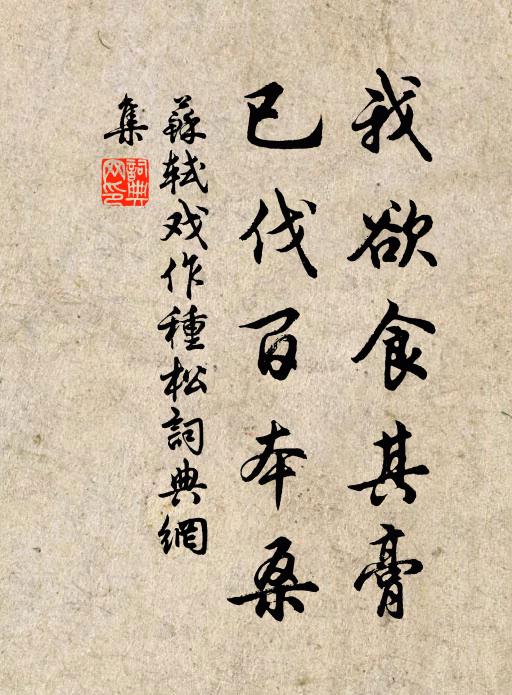 我欲食其膏
已伐百本桑
蘇軾戏作種松詞典網
集
詞典
网印